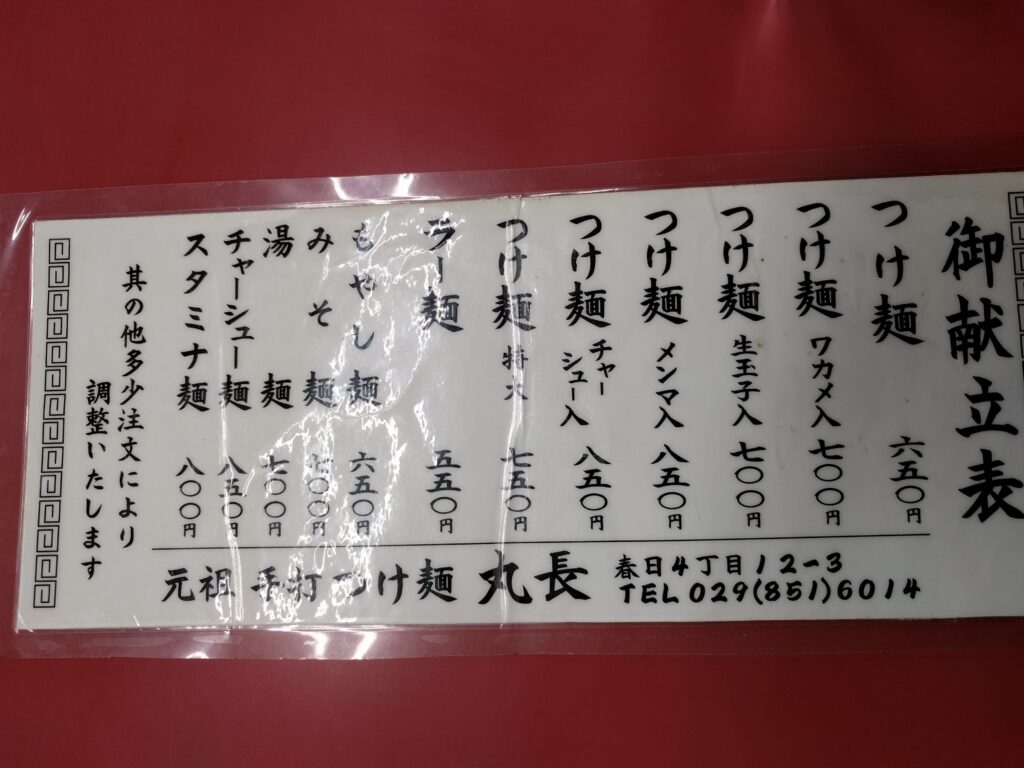 御献立表
つけ麺 六五〇円
つけ麺 ワカメ入 七〇〇円
つけ麺 生玉子入 七〇〇円
つけ麺 メンマ入 八五〇円
つけ麺 チャーシュー入 八五〇円
つけ麺 特大 七五〇円
ラー麺 五五〇円
もやし麺 六五〇円
みそ麺 七〇〇円
湯麺 七〇〇円
チャーシュー麺 八五〇円
スタミナ麺 八〇〇円
其の他多少注文により
調整いたします
元祖 手打つけ麺 丸長
春日4丁目12-3
TEL 029(851)6014